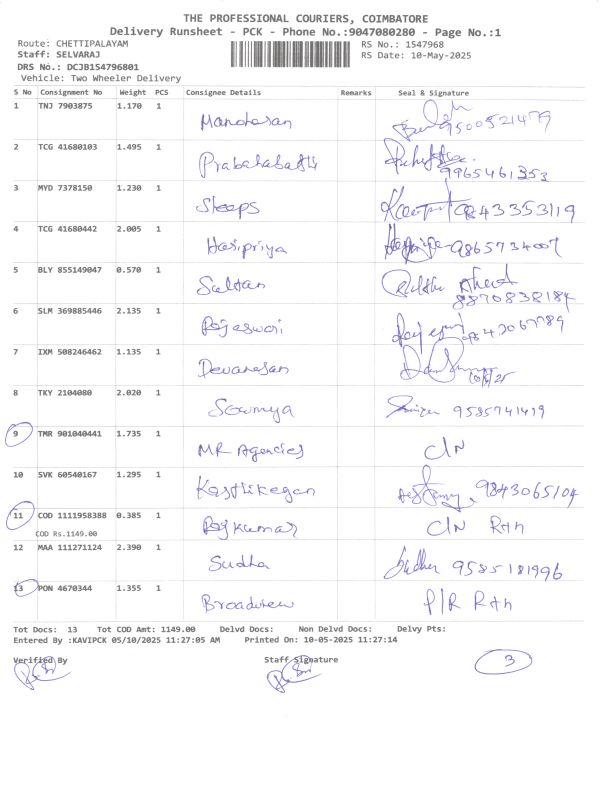 THE PROFESSIONAL COURIERS, COIMBATORE
Delivery Runsheet - PCK - Phone No.:9047080280 - Page No.:1
Route: CHETTIPALAYAM RS No.: 1547968
Staff: SELVARAJ RS Date: 10-May-2025
DRS No.: DCJB154796801
Vehicle: Two Wheeler Delivery
S No Consignment No Weight PCS Consignee Details Remarks Seal & Signature
1 TNJ 7903875 1.170 1 Manoharan 9500521479
2 TCG 41680103 1.495 1 9965461353
3 MYD 7378150 1.230 1 Sleeps 9843353119
4 TCG 41680442 2.005 1 Haripriya 9865734007
5 BLY 855149047 0.570 1 Sultan 8870838184
6 SLM 369885446 2.135 1 Rajeswari
7 IXM 508246462 1.135 1 Devanesan
8 TKY 2104080 2.020 1 Sowmya 9585741419
9 TMR 901040441 1.735 1 MR Agencies C/N
10 SVK 60540167 1.295 1 Karthikeyan 9843065104
11 COD 1111958388 0.385 1 Rajkumar C/N Rth
COD Rs.1149.00
12 MAA 111271124 2.390 1 Sudha 9585181996
13 PON 4670344 1.355 1 Broadview P/R Rth
Tot Docs: 13 Tot COD Amt: 1149.00 Delvd Docs: Non Delvd Docs: Delvy Pts:
Entered By :KAVIPCK 05/10/2025 11:27:05 AM Printed On: 10-05-2025 11:27:14
Verified By Staff Signature 3